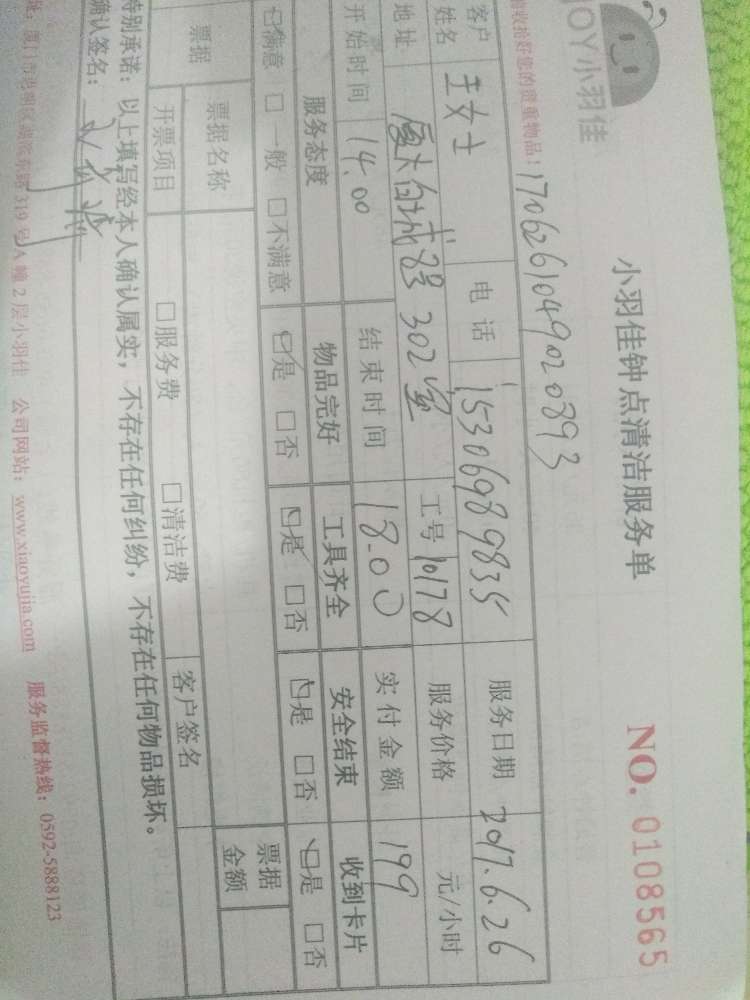 JOY小羽佳
小羽佳钟点清洁服务单
NO. 0108565
收拾好您的贵重物品！1706261049020893
客户姓名 王女士 电话 15306989835 服务日期 2017.6.26
地址 厦大白城 302室 工号 10178 服务价格 元/小时
开始时间 14.00 结束时间 18.00 实付金额 199
服务态度 物品完好 工具齐全 安全结束 收到卡片
☑满意 □一般 □不满意 ☑是 □否 ☑是 □否 ☑是 □否 ☑是 □否
票据 票据名称 票据金额
开票项目 □服务费 □清洁费 客户签名
特别承诺：以上填写经本人确认属实，不存在任何纠纷，不存在任何物品损坏。
确认签名：
厦门市思明区湖滨东路319号A幢2层小羽佳 公司网站：www.xiaoyujia.com 服务监督热线：0592-5888123